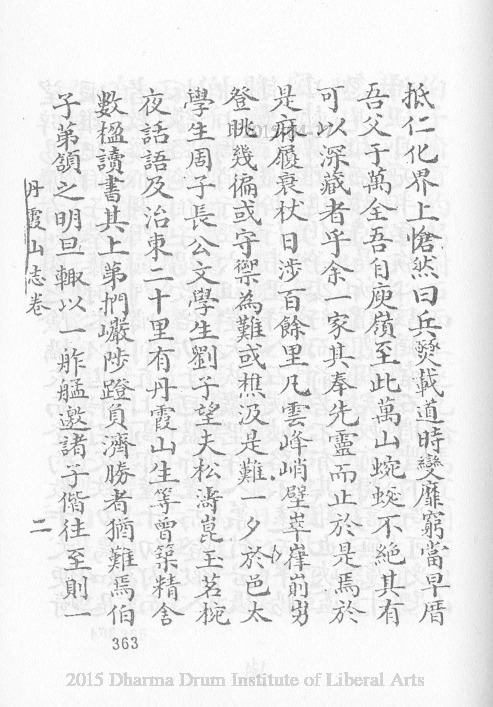 抵仁化界上愴然曰兵燹載道時變靡窮當早厝
吾父于萬全吾自庾嶺至此萬山蜿蜒不絕其有
可以深藏者乎余一家其奉先靈而止於是焉於
是麻屨衰杖日涉百餘里凡雲峰峭壁崒嵂崱屴
登眺幾徧或守禦為難或樵汲是難一夕於邑太
學生周子長公文學生劉子望夫松濤崑玉茗椀
夜話語及治東二十里有丹霞山生等曾築精舍
數楹讀書其上苐捫巘陟蹬負濟勝者猶難焉伯
子苐頷之明旦輙以一舴艋邀諸子偕往至則一
丹霞山志卷
二
363
2015 Dharma Drum Institute of Liberal Arts